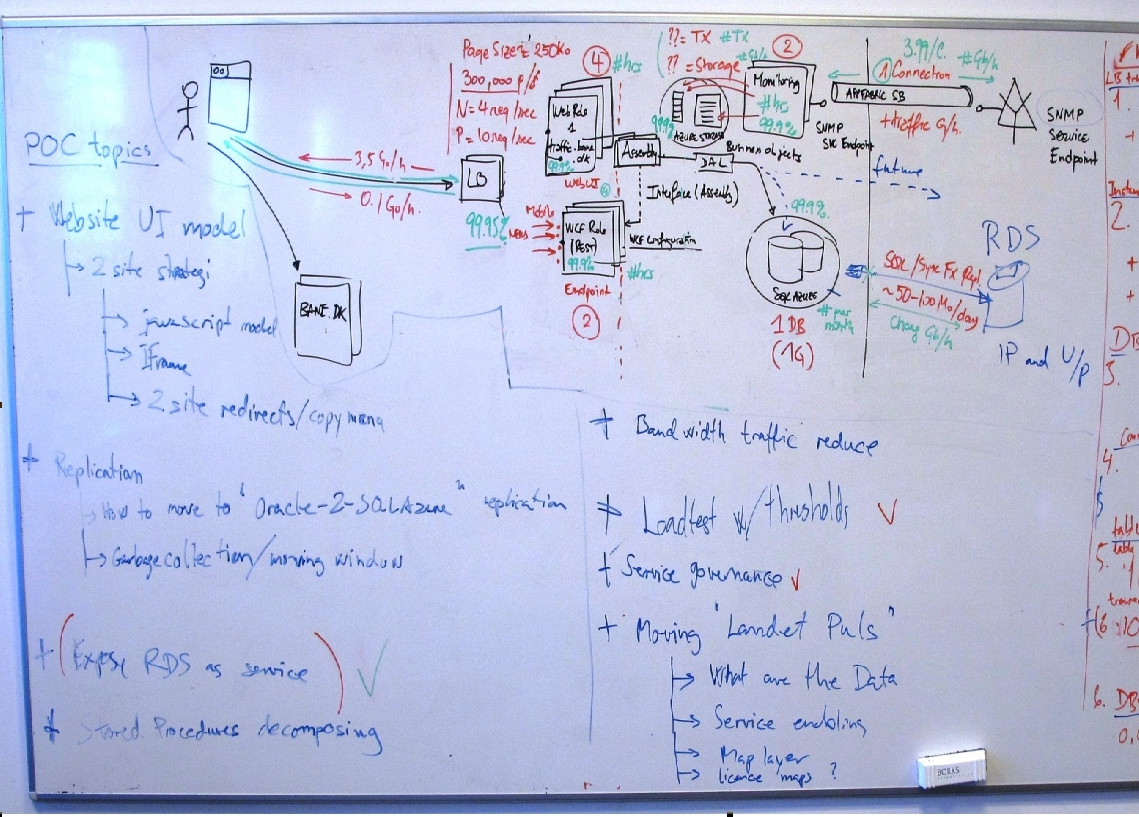 POC topics
+ Website UI model
2 site strategi
javascript model
Iframe
2 site redirects/copy mena
+ Replication
How to move to "Oracle-2-SQLAzure" replication
Garbage collection/moving window
+ (Expose RDS as service) ✓
+ Stored Procedures decomposing
BANE.DK
3,5 Go/h
0.1 Go/h.
LB
99.95%
Page Size: 250Ko
300,000 p/
N = 4 req/sec
P = 10 req/sec
4
#hrs
Web Role
1
traffic.bane
.dk
99.9%
WebUI
Mobile
WCF Role
(REST)
99.9%
Endpoint
2
#hrs
Assembly
Interface (Assembly)
WCF Configuration
?? = TX #TX
?? = Storage #Gb/h
99.9%
AZURE STORAGE
2
Monitoring
#hrs
99.9%
SNMP
Endpoint
DAL
Bunnen objects
99.9%
SQL AZURE
1 DB
(1G)
# per
month
3.99/C. #Gb/h
1 Connection
APPFABRIC SB
+traffic G/h.
SNMP
Service
Endpoint
future
RDS
SQL/Sync Fx Repl.
~50-100 Mo/day
Chang Gb/h
IP and U/P
+ Bandwidth traffic reduce
+ Loadtest w/thresholds ✓
+ Service governance ✓
+ Moving "Landet Puls"
What are the Data
Service enabling
Map layer
licence maps ?
1.
+
2.
+
+
3.
4.
5.
6.
DB